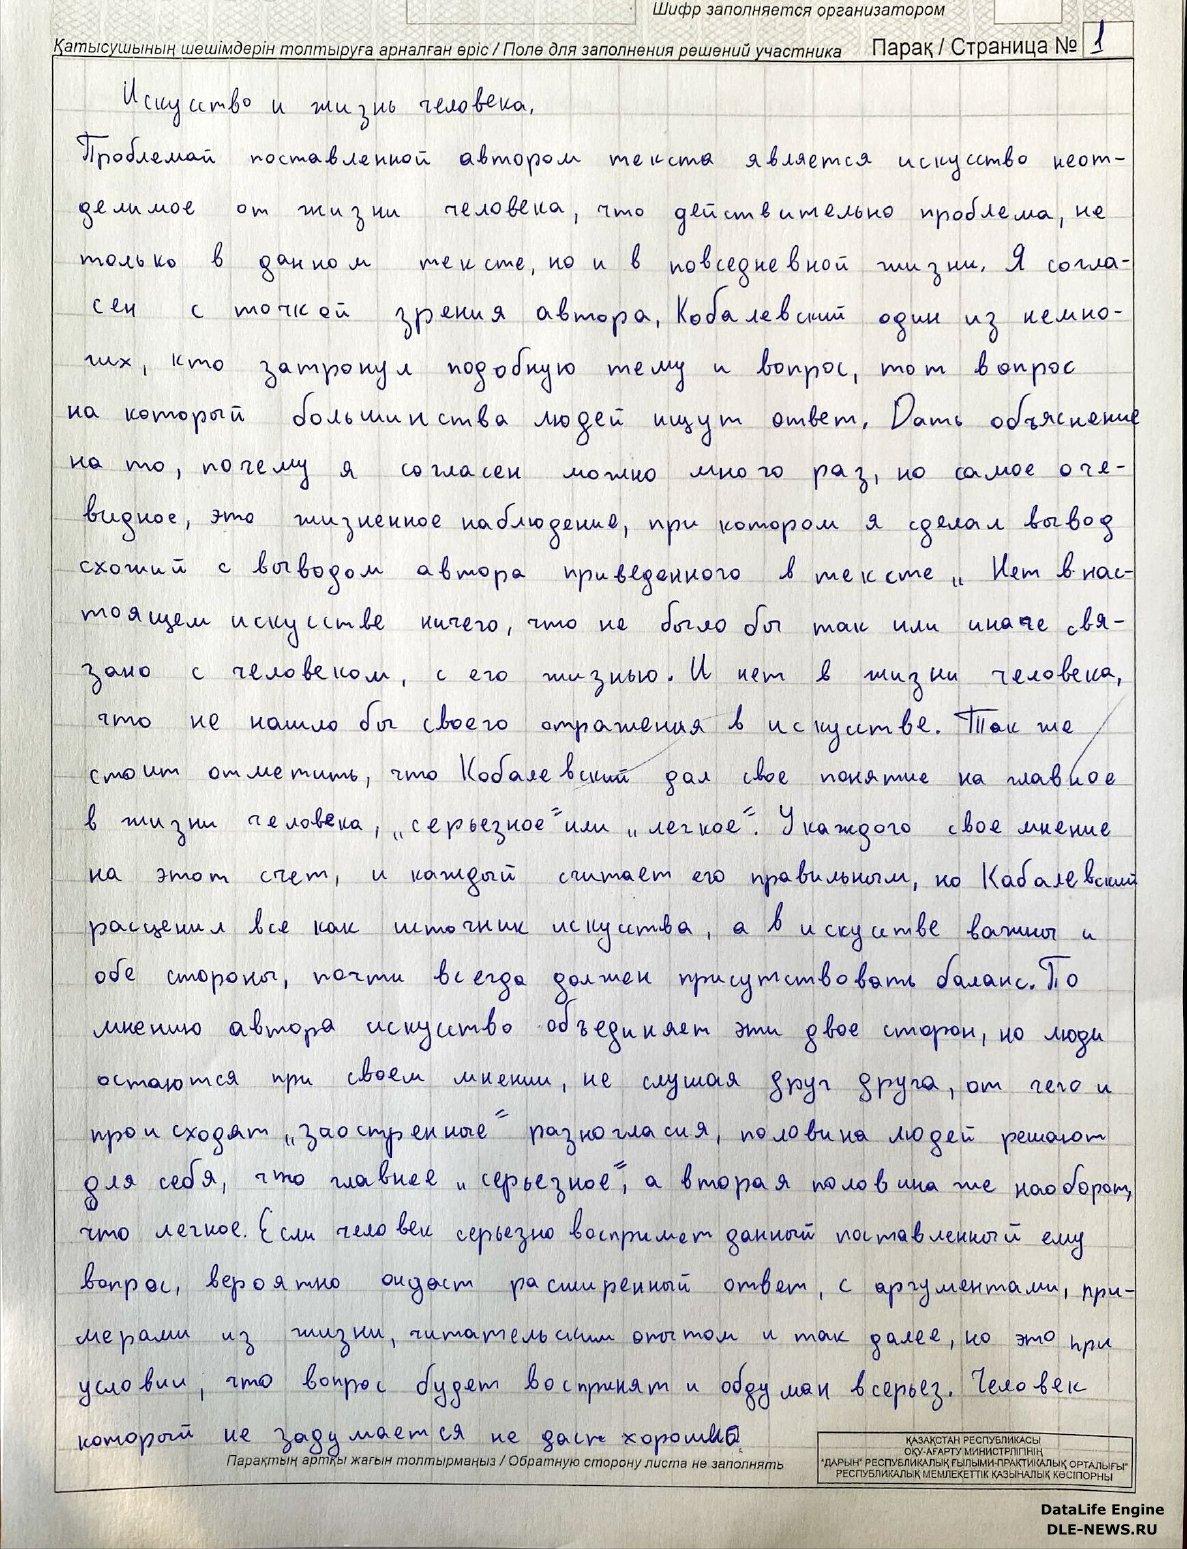 Шифр заполняется организатором
Қатысушының шешімдерін толтыруға арналған өріс / Поле для заполнения решений участника Парақ / Страница № 1
Искусство и жизнь человека.
Проблемой поставленной автором текста является искусство неот-
делимое от жизни человека, что действительно проблема, не
только в данном тексте, но и в повседневной жизни. Я согла-
сен с точкой зрения автора, Кобалевский один из немно-
гих, кто затронул подобную тему и вопрос, тот вопрос
на который большинства людей ищут ответ. Дать объяснение
на то, почему я согласен можно много раз, но самое оче-
видное, это жизненное наблюдение, при котором я сделал вывод
схожий с выводом автора приведенного в тексте „ Нет в нас-
тоящем искусстве ничего, что не было бы так или иначе свя-
зано с человеком, с его жизнью. И нет в жизни человека,
что не нашло бы своего отражения в искусстве. Так же
стоит отметить, что Кобалевский дал свое понятие на главное
в жизни человека, „серьезное“ или „легкое“. У каждого свое мнение
на этот счет, и каждый считает его правильным, но Кабалевский
расценил все как источник искусства, а в искустве важны и
обе стороны, почти всегда должен присутствовать баланс. По
мнению автора искусство объединяет эти двое сторон, но люди
остаются при своем мнении, не слушая друг друга, от чего и
происходят „заостренные“ разногласия, половина людей решают
для себя, что главнее „серьезное“, а вторая половина же наоборот,
что легкое. Если человек серьезно воспримет данный поставленный ему
вопрос, вероятно он даст расширенный ответ, с аргументами, при-
мерами из жизни, читательским опытом и так далее, но это при
условии, что вопрос будет воспринят и обдуман всерьез. Человек
который не задумается не даст
Парақтың артқы жағын толтырмаңыз / Обратную сторону листа не заполнять
ҚАЗАҚСТАН РЕСПУБЛИКАСЫ
ОҚУ-АҒАРТУ МИНИСТРЛІГІНІҢ
"ДАРЫН" РЕСПУБЛИКАЛЫҚ ҒЫЛЫМИ-ПРАКТИКАЛЫҚ ОРТАЛЫҒЫ"
РЕСПУБЛИКАЛЫҚ МЕМЛЕКЕТТІК ҚАЗЫНАЛЫҚ КӘСІПОРНЫ
DataLife Engine
DLE-NEWS.RU